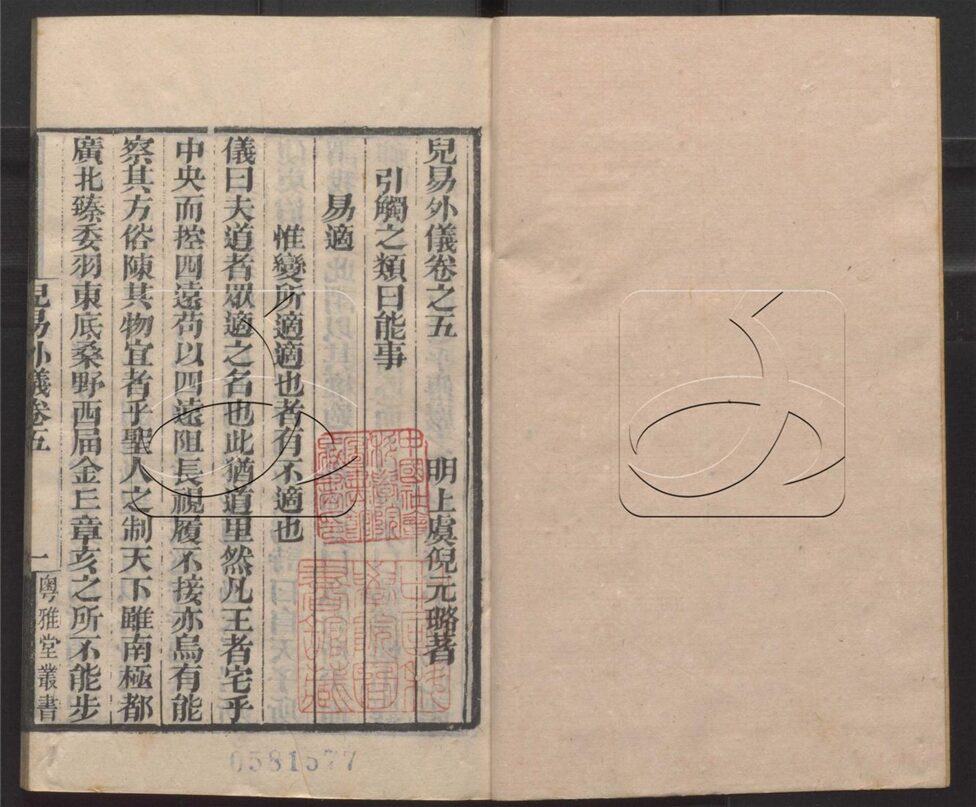 兒易外儀卷之五
明上虞倪元璐著
引觸之類曰能事
易適
惟變所適適也者有不適也
儀曰夫道者眾適之名也此猶道里然凡王者宅乎
中央而控四遠苟以四遠阻長視履不接亦烏有能
察其方俗陳其物宜者乎聖人之制天下雖南極都
廣北臻委羽東底桑野西屆金丘章亥之所不能步
兒易外儀卷五
一
粵雅堂叢書
0581577